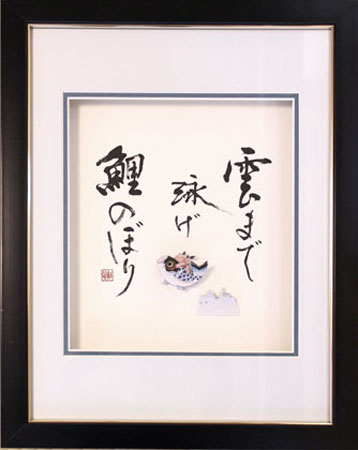 雲まで
泳げ
鯉のぼり